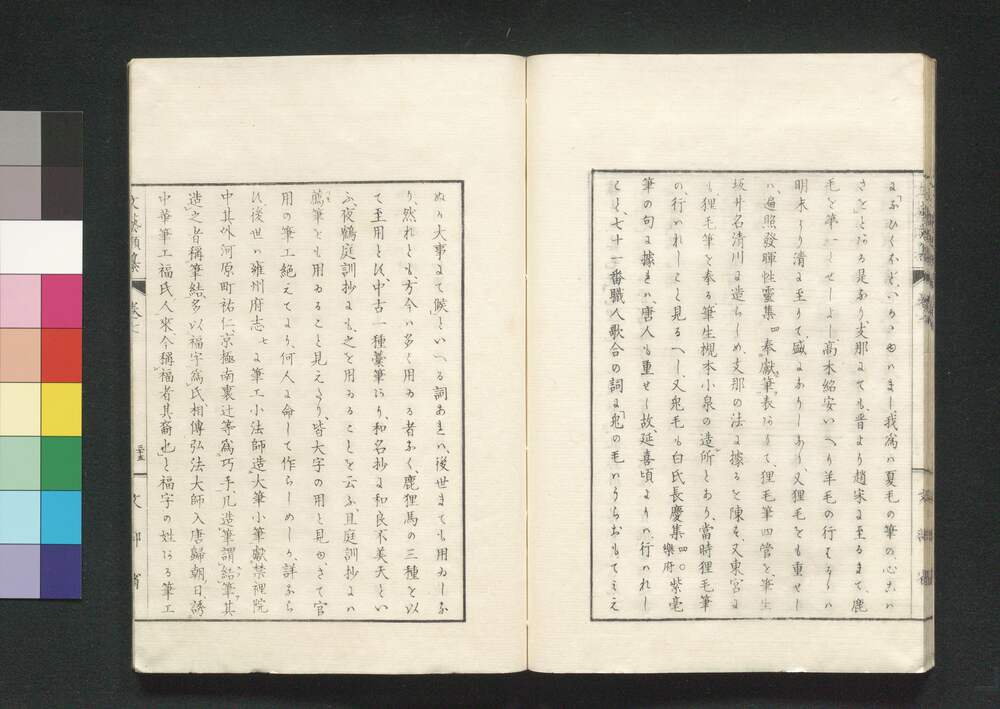 よぶひくかど、いかゝ由いまし我為ハ夏毛の筆の心こハ
さを」とある是なり、支那にても、晋より趙宋に至るまて、鹿
毛を第一とせしよし、高木紹安いへり羊毛の行はるゝハ
明末より清に至りて、盛になりしなり、又狸毛をも重せし
ハ、遍照發揮性靈集四奉獻筆表ありて狸毛筆四管を筆生
坂井名清川に造らしめ、支那の法に據るを陳る、又東宮に
も、狸毛筆を奉る、筆生槻本小泉の造所とあり、當時狸毛筆
の、行ハれしこと見るへし、又兎毛も白氏長慶集四〇樂府紫毫
筆の句に據きハ、唐人も重せし故、延喜頃よりハ、行ハれし
とく、七十一番職人歌合の詞に「兎の毛いうらおもてそえ
ぬか大事にて候」といへる詞あれハ、後世まても用ゐしな
り、然れとも、方今ハ多く用ゐる者なく、鹿狸馬の三種を以
て至用とす、中古一種藁筆あり、和名抄に和良不美天とい
ふ、夜鶴庭訓抄にも、之を用ゐることを云ふ、且庭訓抄にハ
鷹筆とも用ゐること見えたり、皆大字の用と見ゆ、さて官
用の筆工絶えてより、何人に命して作らしめしか、詳なら
す、後世ハ雍州府志七に筆工小法師造大筆小筆獻禁裡院
中其外河原町祐仁、京極南裏辻等爲巧手、凡造筆謂結筆、其
造之者稱筆結、多以福字爲氏、相傳弘法大師入唐歸朝日、誘
中華筆工福氏人來、今稱福者其裔也」と福字の姓ある筆工
文藝類纂 卷七 三十五 文部省